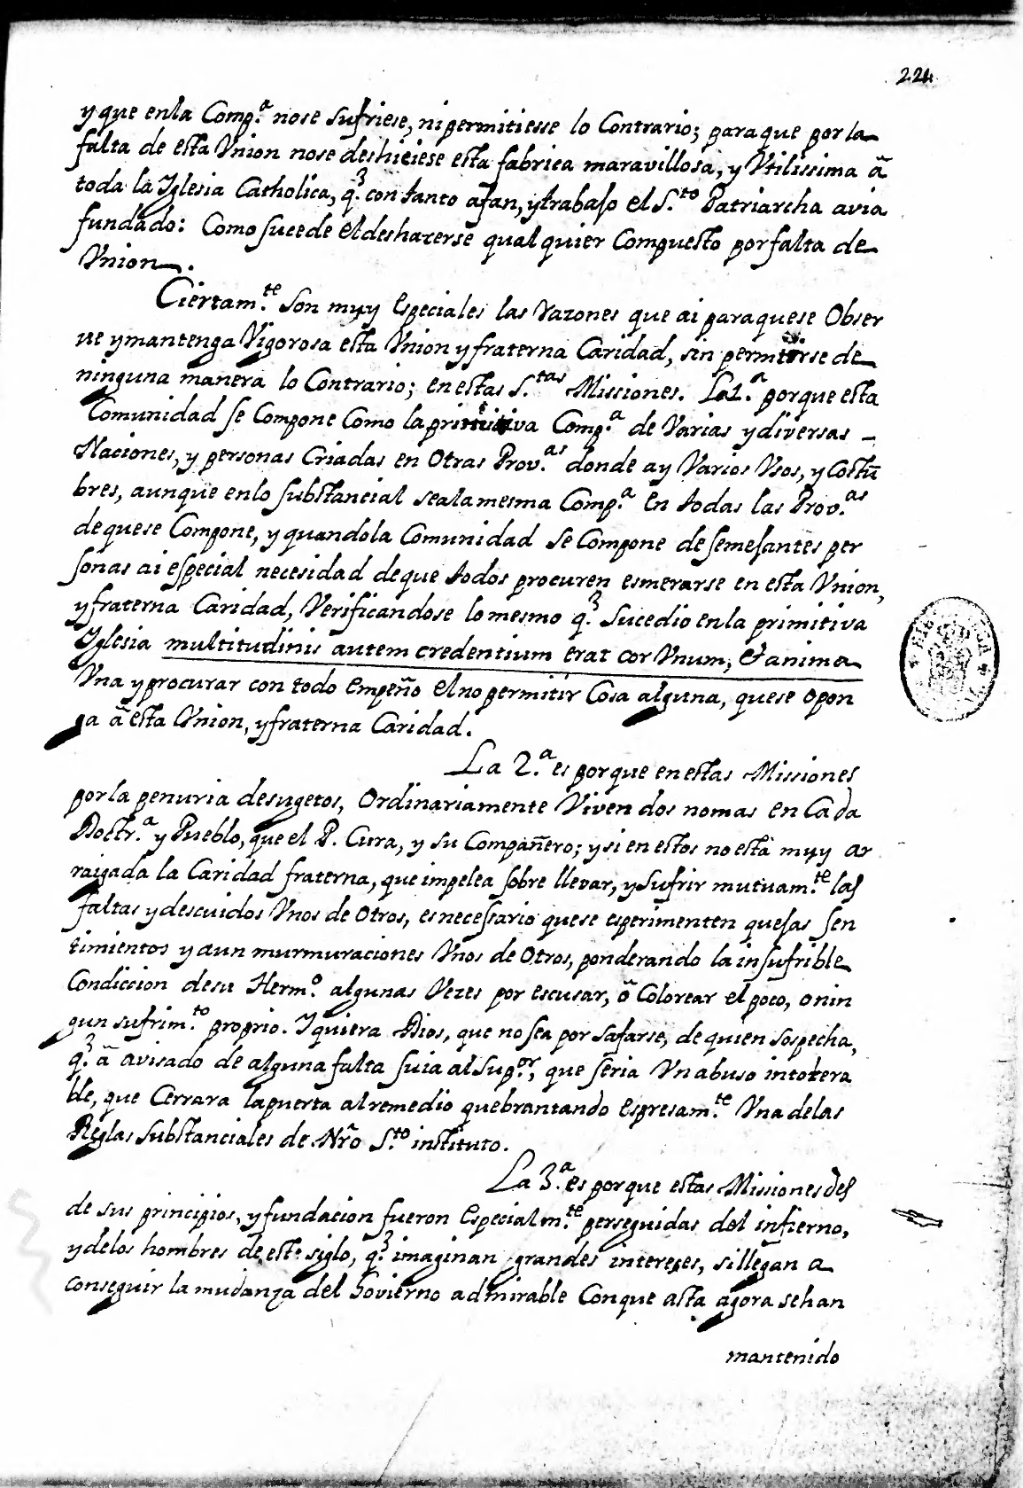 224
y que en la Comp.ª no se sufriese, ni permitiesse lo Contrario; para que por la
falta de esta Vnion no se deshiciese esta fabrica maravillosa, y Vtilissima â
toda la Iglesia Catholica, q.^e con tanto afan, y trabajo el S.^to Patriarcha avia
fundado: Como sucede el deshazerse qualquier Compuesto por falta de
Vnion.
Ciertam.^te son muy Especiales las Razones que ai para que se Obser
ve y mantenga Vigorosa esta Vnion y fraterna Caridad, sin permitirse de
ninguna manera lo Contrario; en estas S.^tas Missiones. La 1.ª porque esta
Comunidad se Compone Como la primitiva Comp.ª de Varias y diversas
Naciones, y personas Criadas en Otras Prov.^as donde ay Varios Vsos, y Costũ
bres, aunque en lo substancial sea la mesma Comp.ª En todas las Prov.^as
de que se Compone, y quando la Comunidad se Compone de semejantes per
sonas ai especial necesidad de que todos procuren esmerarse en esta Vnion,
y fraterna Caridad, Verificandose lo mesmo q.^e Sucedio en la primitiva
Iglesia multitudinis autem credentium erat cor Vnum, et anima
Vna y procurar con todo Empeño el no permitir Cosa alguna, que se opon
ga â esta Vnion, y fraterna Caridad.
La 2.ª es porque en estas Missiones
por la penuria de sugetos, Ordinariamente Viven dos no mas en Cada
Doctr.ª y Pueblo, que el P. Cura, y su Compañero; y si en estos no està muy ar
raigada la Caridad fraterna, que impelea sobre llevar, y sufrir mutuam.^te las
faltas y descuidos Vnos de Otros, es necessario que se esperimenten quejas sen
timientos y aun murmuraciones Vnos de Otros, ponderando la insufrible
Condiccion de su Herm.º algunas Vezes por escusar, ô Colorear el poco, o nin
gun sufrim.^to proprio. I quiera Dios, que no sea por safarse, de quien sospecha,
q.^e â avisado de alguna falta suia al Sup.^or, que seria Vn abuso intolera
ble, que Cerrara la puerta al remedio quebrantando espresam.^te Vna de las
Reglas Substanciales de Nrõ S.^to instituto.
La 3.ª es porque estas Missiones des
de sus principios, y fundacion fueron Especialm.^te perseguidas del infierno,
y de los hombres de este siglo, q.^e imaginan grandes intereses, si llegan a
conseguir la mudanza del Govierno admirable Con que asta agora se han
mantenido